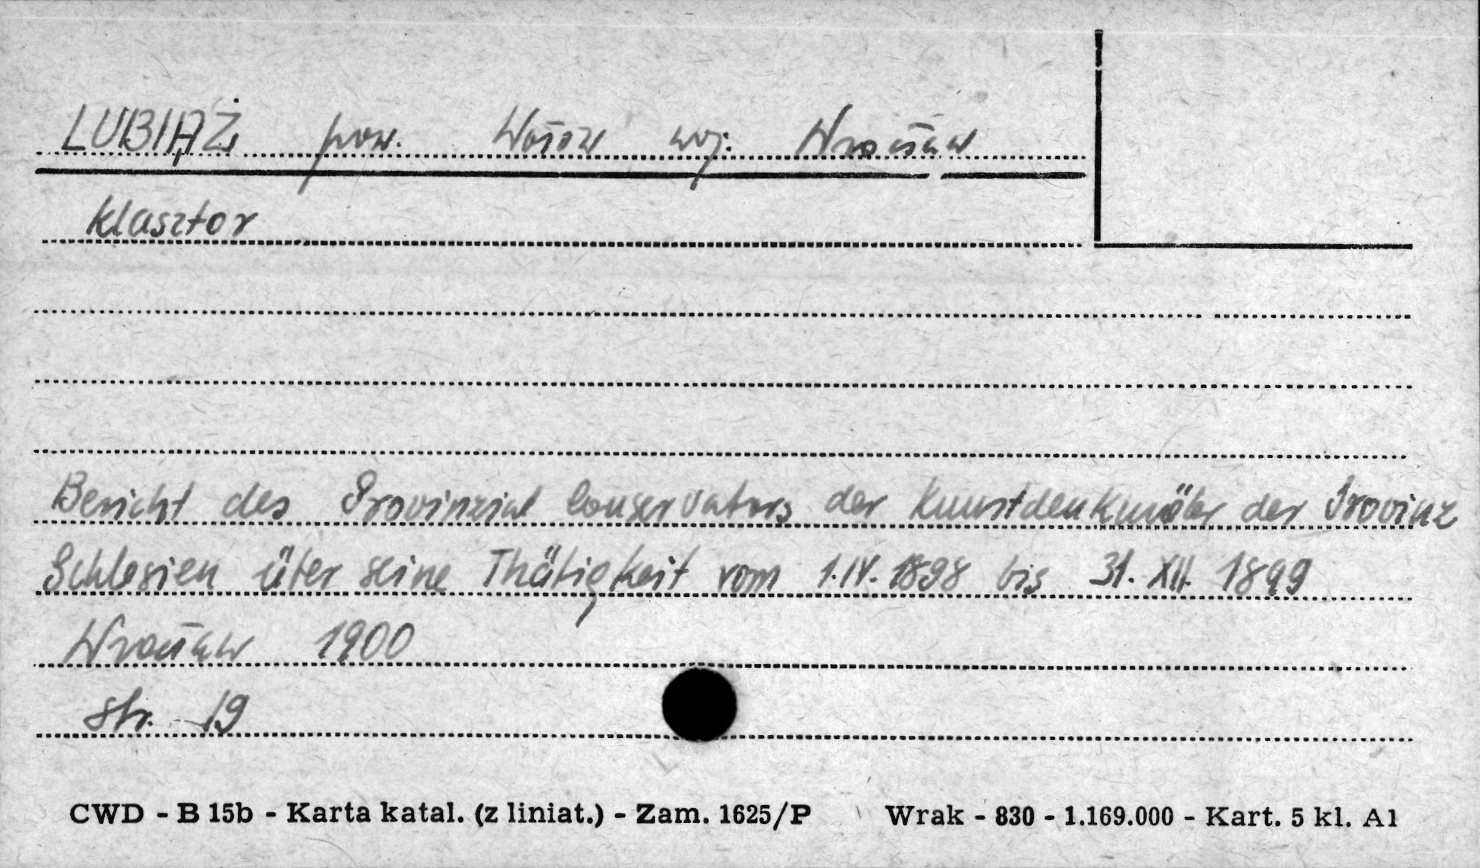 LUBIĄŻ pow. Wołów woj. Wrocław
klasztor
Bericht des Provinzial Conservators der Kunstdenkmäler der Provinz
Schlesien über seine Thätigkeit vom 1.IV.1898 bis 31.XII.1899
Wrocław 1900
str. 19
CWD - B 15b - Karta katal. (z liniat.) - Zam. 1625/P Wrak - 830 - 1.169.000 - Kart. 5 kl. A1